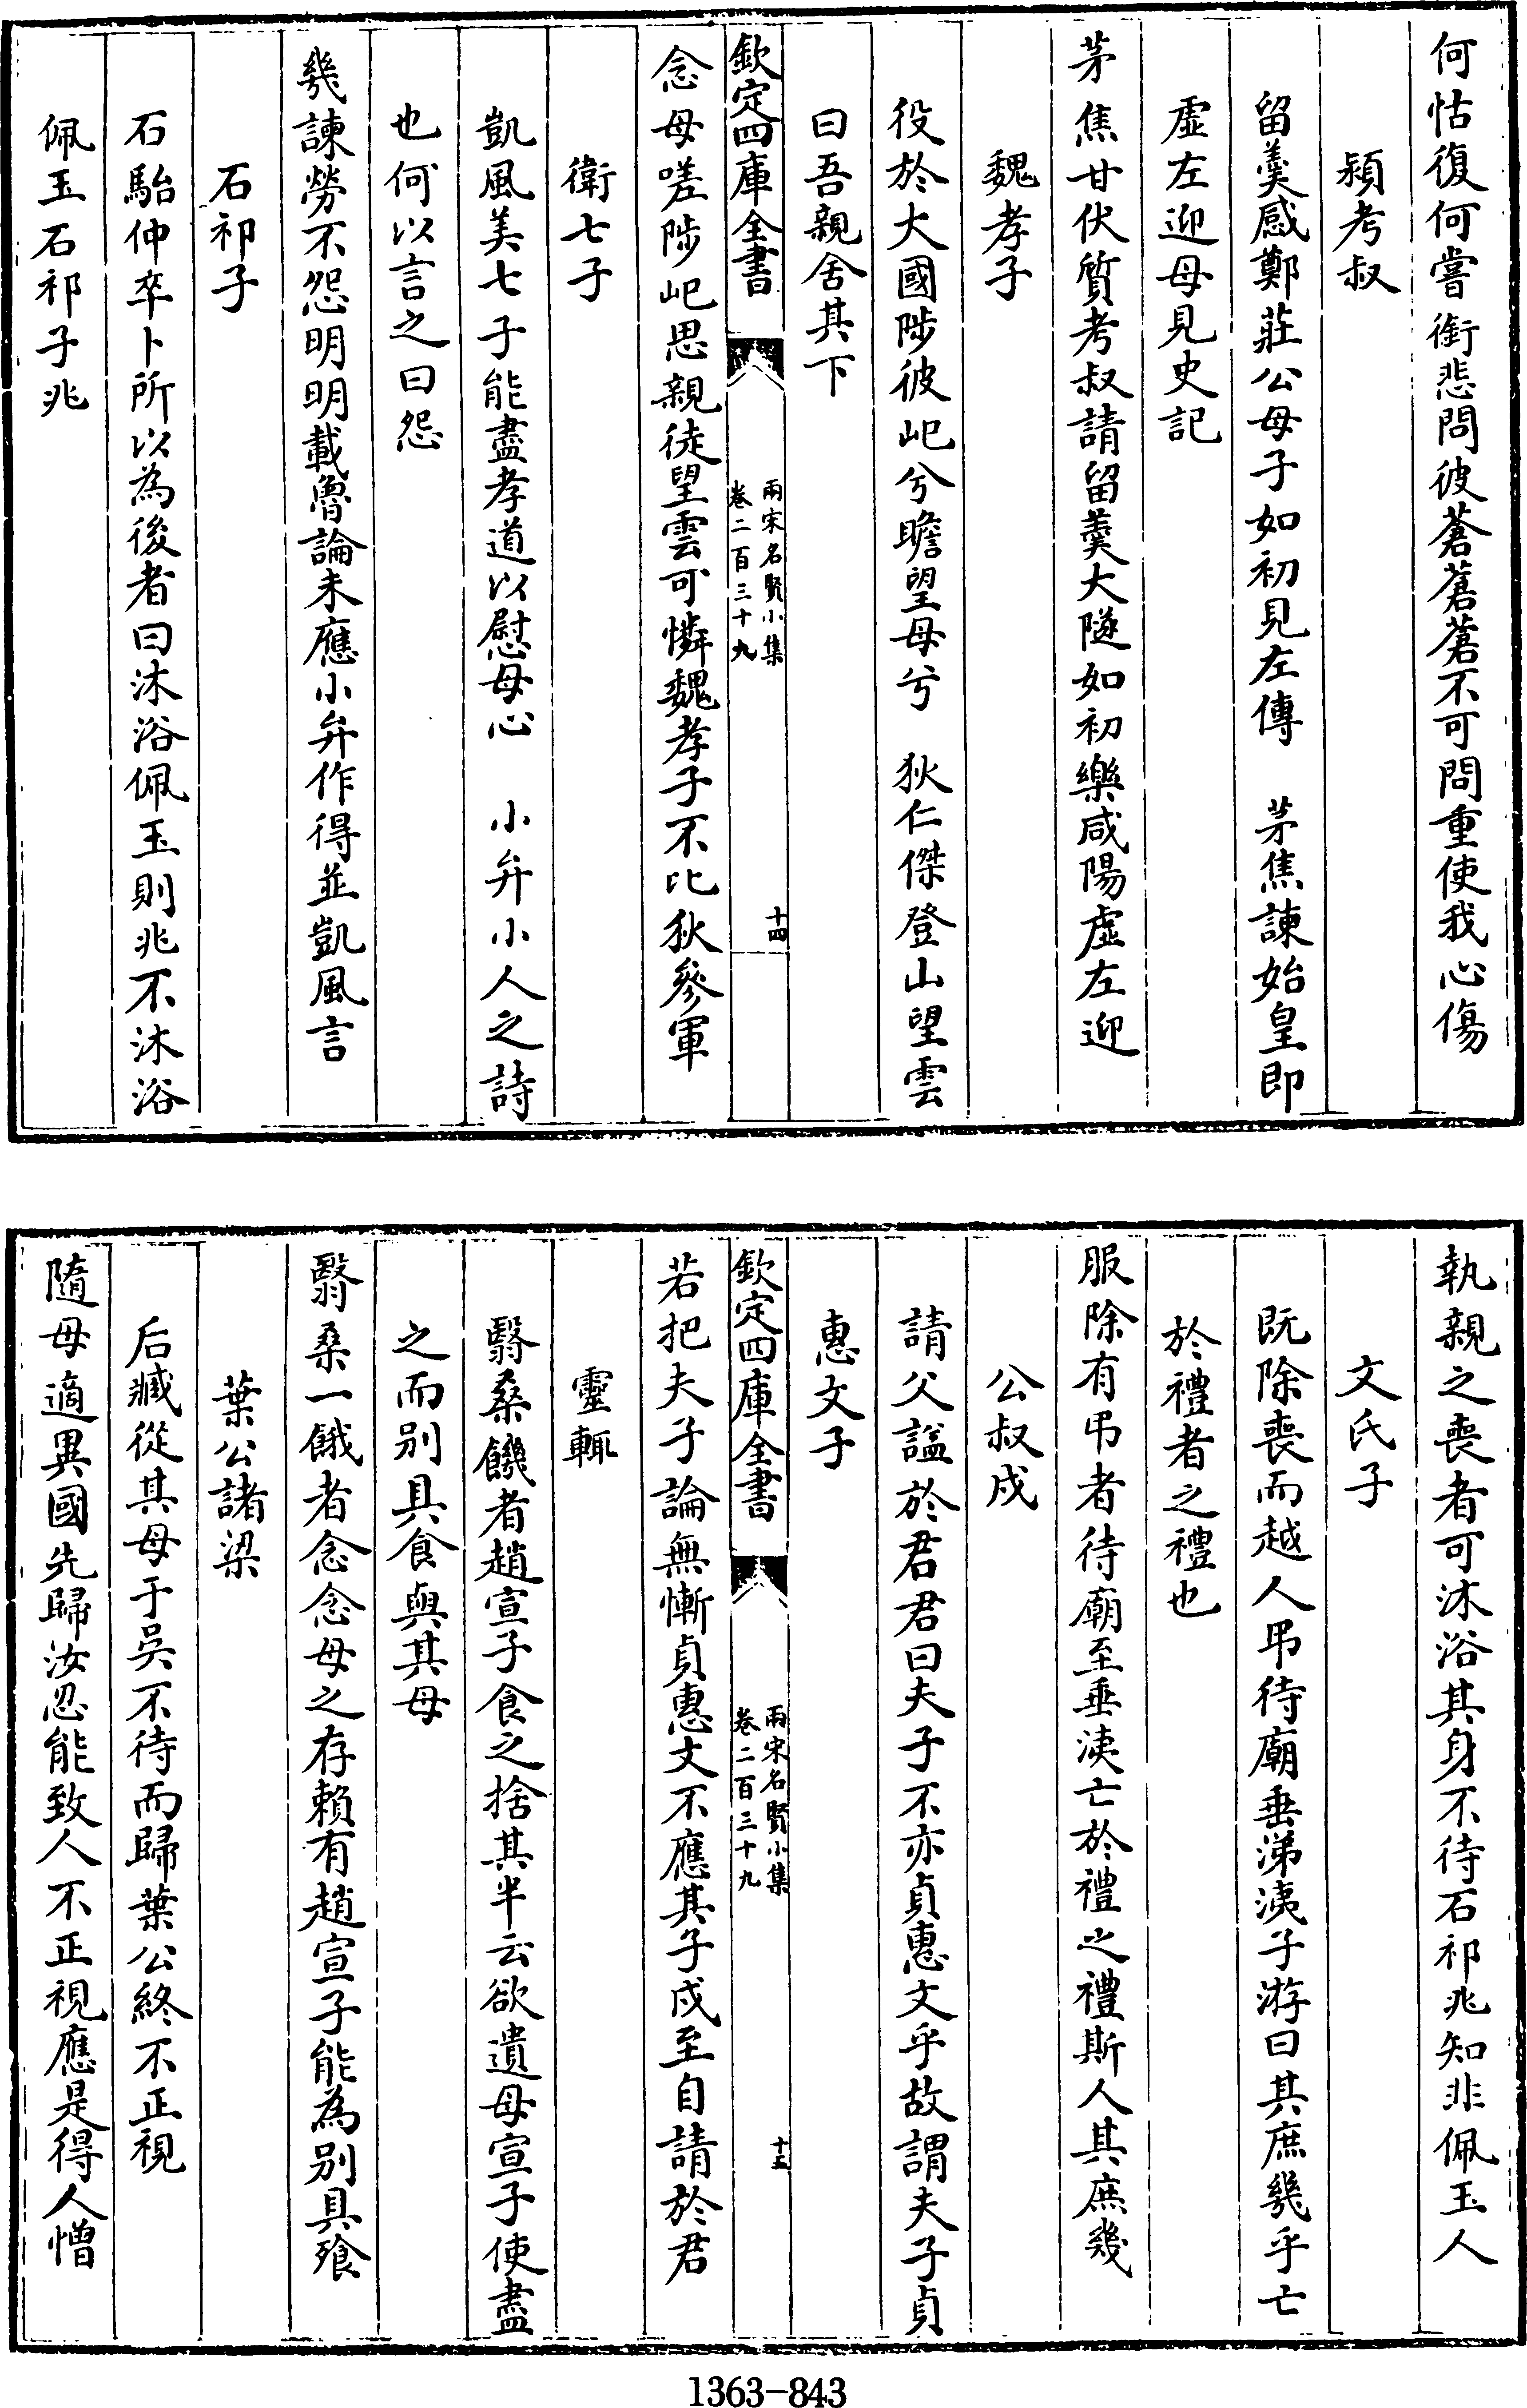 何怙復何嘗銜悲問彼蒼蒼蒼不可問重使我心傷
潁考叔
留羮感鄭莊公母子如初見左傳　茅焦諫始皇即
虛左迎母見史記
茅焦甘伏質考叔請留羮大隧如初樂咸陽虛左迎
魏孝子
役於大國陟彼屺兮瞻望母兮　狄仁傑登山望雲
曰吾親舍其下
欽定四庫全書
兩宋名賢小集
卷二百三十九
十四
念母嗟陟屺思親徒望雲可憐魏孝子不比狄參軍
衛七子
凱風美七子能盡孝道以慰母心　小弁小人之詩
也何以言之曰怨
幾諫勞不怨明明載魯論未應小弁作得並凱風言
石祁子
石駘仲卒卜所以為後者曰沐浴佩玉則兆不沐浴
佩玉石祁子兆
執親之喪者可沐浴其身不待石祁兆知非佩玉人
文氏子
既除喪而越人弔待廟垂涕洟子游曰其庶幾乎亡
於禮者之禮也
服除有弔者待廟至垂洟亡於禮之禮斯人其庶幾
公叔戍
請父諡於君君曰夫子不亦貞惠文乎故謂夫子貞
惠文子
欽定四庫全書
兩宋名賢小集
卷二百三十九
十五
若把夫子論無慚貞惠文不應其子戍至自請於君
靈輒
翳桑饑者趙宣子食之捨其半云欲遺母宣子使盡
之而别具食與其母
翳桑一餓者念念母之存賴有趙宣子能為别具飱
葉公諸梁
后臧從其母于吳不待而歸葉公終不正視
隨母適異國先歸汝忍能致人不正視應是得人憎
1363-843